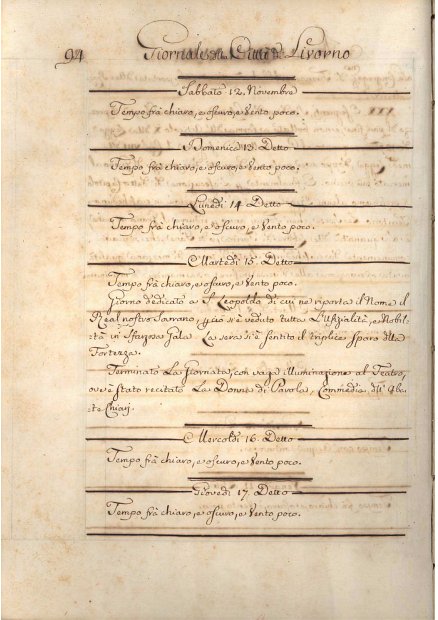 94 Giornale della Città di Livorno
Sabbato 12. Novembre
Tempo frà chiaro, e oscuro, e Vento poco.
Domenica 13. Detto
Tempo frà chiaro, e oscuro, e Vento poco.
Lunedì 14. Detto
Tempo frà chiaro, e oscuro, e Vento poco.
Martedì 15. Detto
Tempo frà chiaro, e oscuro, e Vento poco.
Giorno dedicato a S. Leopoldo di cui ne riporta il Nome il
Real nostro Sovrano, p. ciò si è veduto tutta L'Ufizialità, e Nobil-
tà in sfarzosa Gala. La sera si è sentito il triplice sparo della
Fortezza.
Terminato La Giornata, con vaga illuminazione al Teatro,
ove è stato recitato La Donna di Parola, Commedia dell' Aba-
te Chiari.
Mercoldì 16. Detto
Tempo frà chiaro, e oscuro, e Vento poco.
Giovedì 17. Detto
Tempo frà chiaro, e oscuro, e Vento poco.